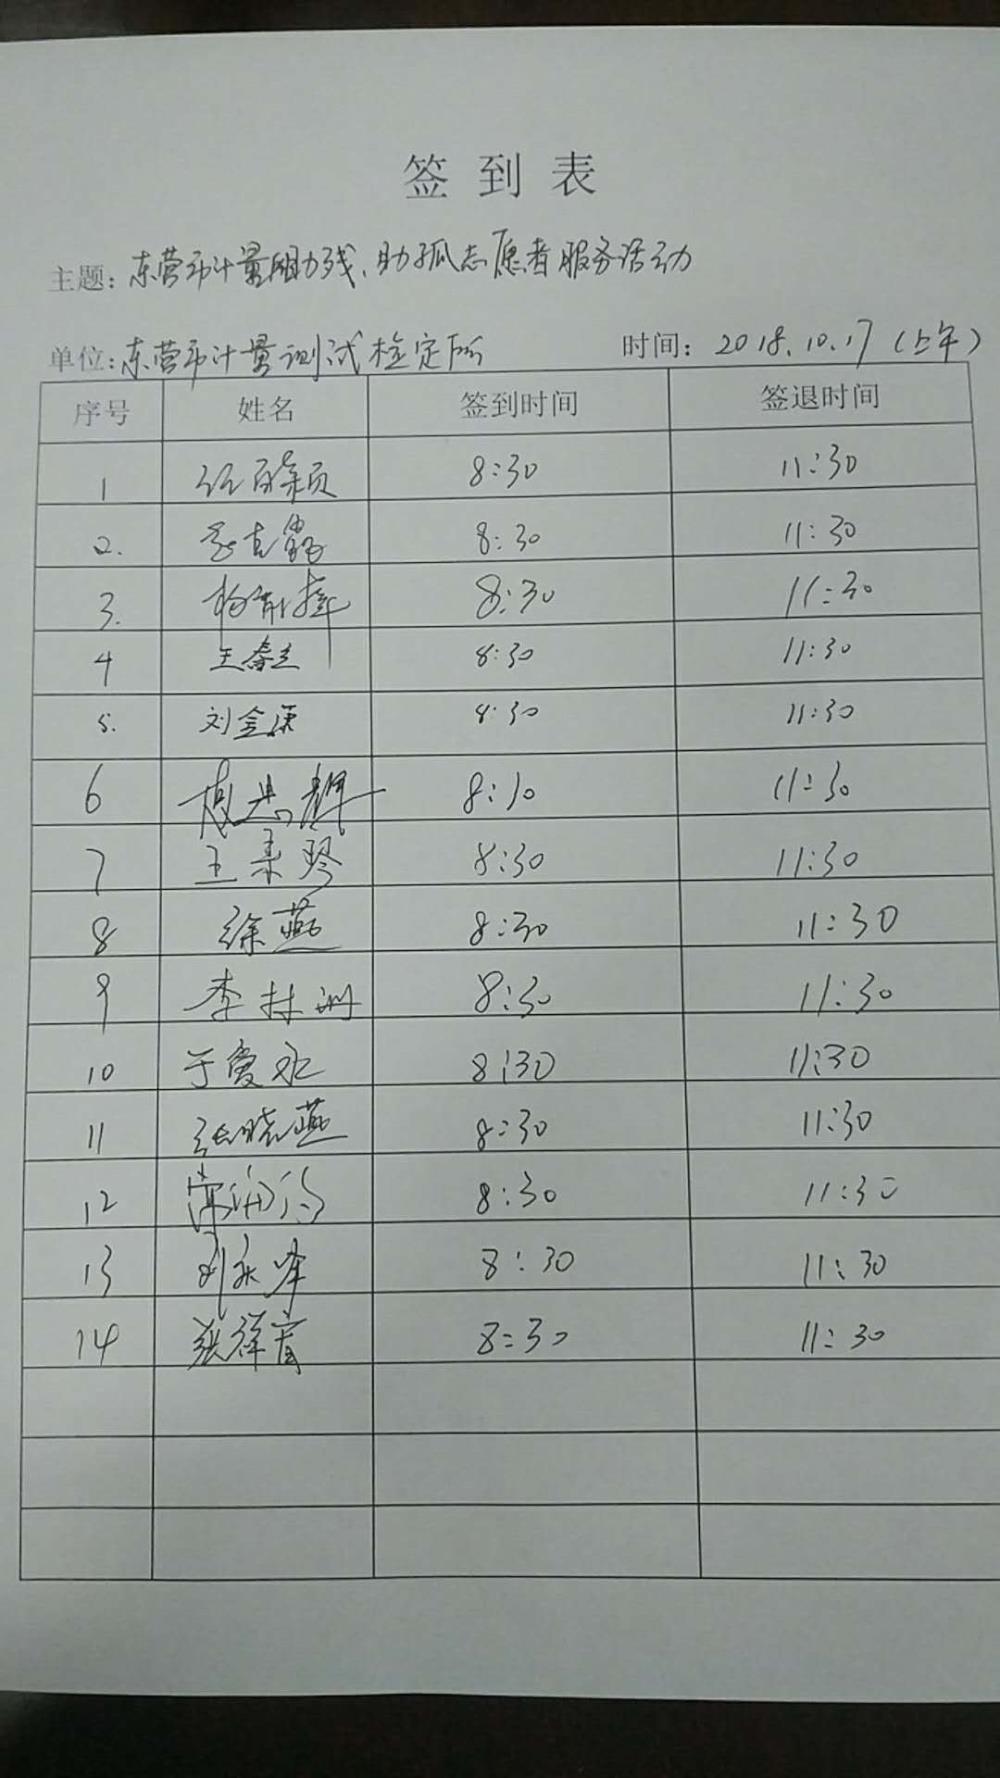 签到表
主题: 东营市计量助残、助孤志愿者服务活动
单位: 东营市计量测试检定所 时间: 2018.10.17 (上午)
序号 姓名 签到时间 签退时间
1 8:30 11:30
2. 8:30 11:30
3. 8:30 11:30
4 8:30 11:30
5. 刘金康 8:30 11:30
6 8:30 11:30
7 王素琴 8:30 11:30
8 徐燕 8:30 11:30
9 李林洲 8:30 11:30
10 于爱水 8:30 11:30
11 张晓燕 8:30 11:30
12 8:30 11:30
13 刘永峰 8:30 11:30
14 8:30 11:30